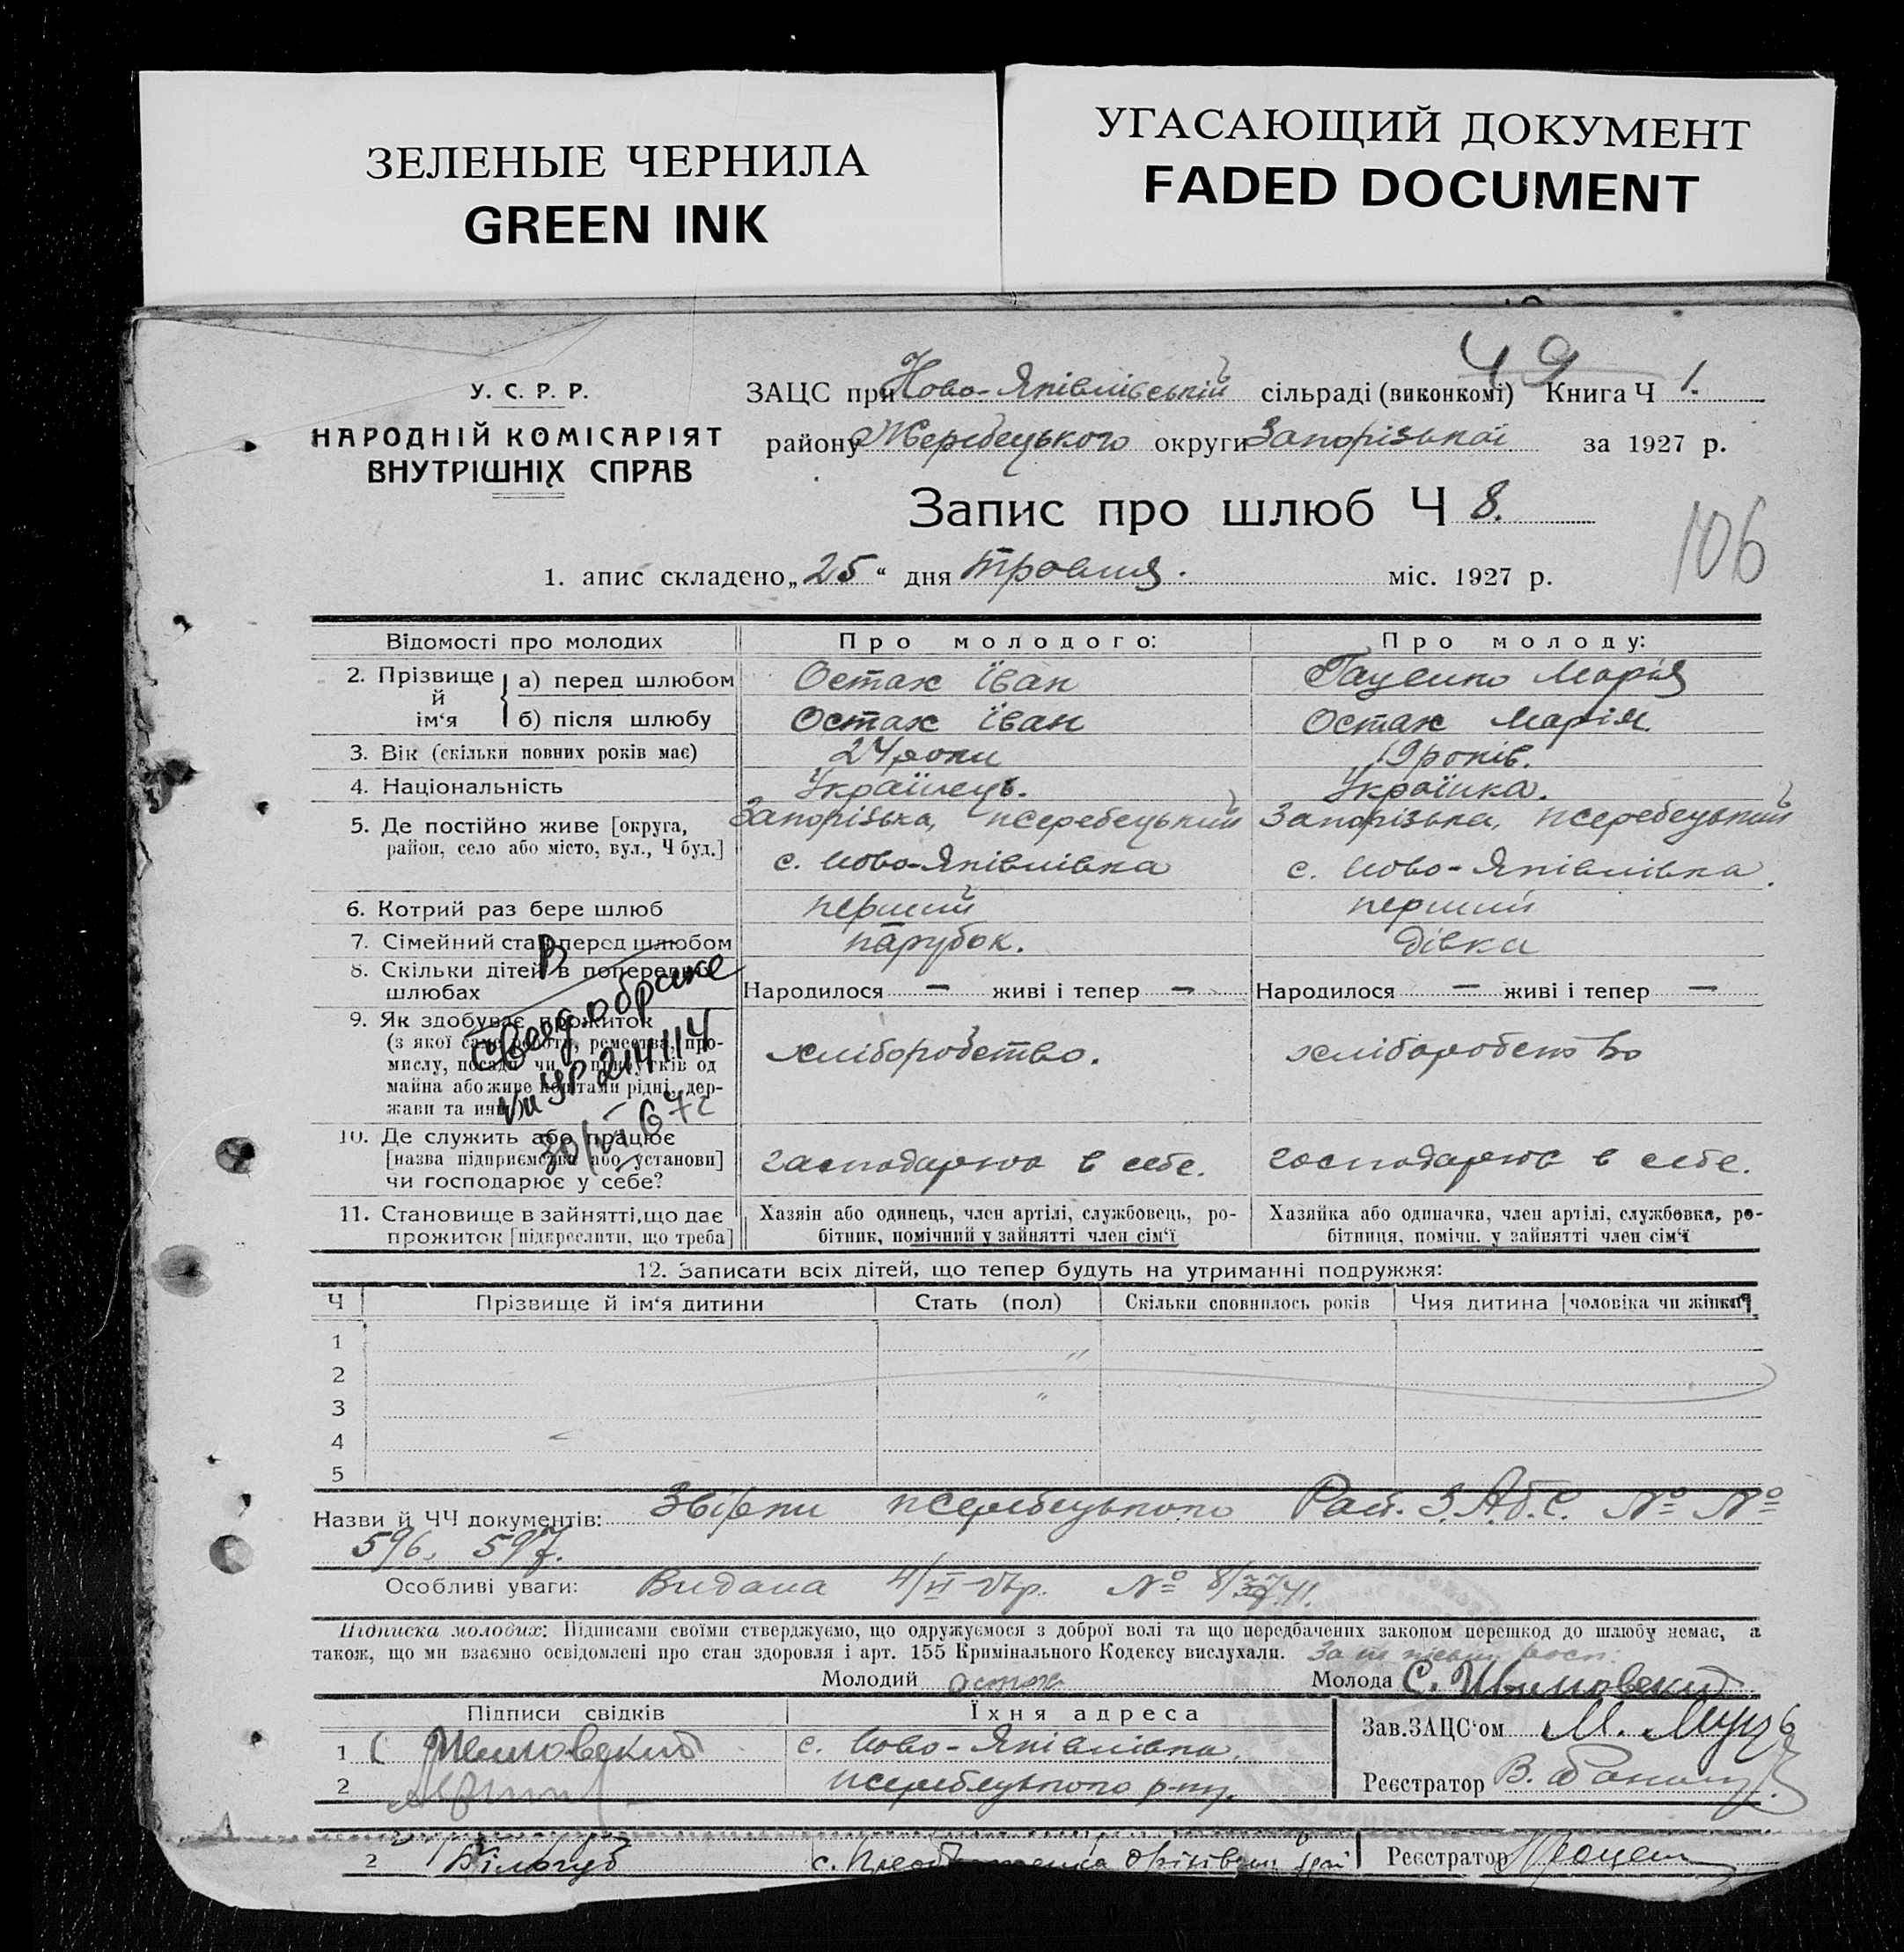 ЗЕЛЕНЫЕ ЧЕРНИЛА
GREEN INK
УГАСАЮЩИЙ ДОКУМЕНТ
FADED DOCUMENT
49
У. С. Р. Р.
НАРОДНІЙ КОМІСАРІЯТ
ВНУТРІШНІХ СПРАВ
ЗАЦС при Ново-Яківлівській сільраді (виконкомі) Книга Ч 1.
району Жеребецького округи Запорізької за 1927 р.
Запис про шлюб Ч 8.
106
1. апис складено „25“ дня травня. міс. 1927 р.
Відомості про молодих Про молодого: Про молоду:
2. Прізвище й ім‘я а) перед шлюбом Остах Іван Гаценко Марія
б) після шлюбу Остах Іван Остах Марія.
3. Вік (скільки повних років має) 24 роки 19 років.
4. Національність Українець. Українка.
5. Де постійно живе [округа, район, село або місто, вул., Ч буд.] Запорізька, Жеребецький Запорізька, Жеребецький
с. Ново-Яківлівка с. Ново-Яківлівка.
6. Котрий раз бере шлюб перший перший
7. Сімейний стан перед шлюбом парубок. дівка
8. Скільки дітей в попередніх шлюбах Народилося — живі і тепер — Народилося — живі і тепер —
9. Як здобуває прожиток
(з якої саме роботи, ремества, про-
мислу, посади чи з прибутків од
майна або живе коштами рідні, дер-
жави та инш.) хліборобство. хліборобство
В
Свид о браке
УР 214114
30/VI 67г
10. Де служить або працює
[назва підприємства або установи]
чи господарює у себе? господарює в себе. господарює в себе.
11. Становище в зайнятті, що дає
прожиток [підкреслити, що треба]
Хазяін або одинець, член артілі, службовець, ро-
бітник, помічний у зайнятті член сім‘ї
Хазяйка або одиначка, член артілі, службовка, ро-
бітниця, помічн. у зайнятті член сім‘ї
12. Записати всіх дітей, що тепер будуть на утриманні подружжя:
Ч Прізвище й ім‘я дитини Стать (пол) Скільки сповнилось років Чия дитина [чоловіка чи жінки]
1
2
3
4
5
Назви й ЧЧ документів: Звірки Жеребецького Рай. З.А.Г.С. № №
596, 597.
Особливі уваги: Видана
Підписка молодих: Підписами своїми стверджуємо, що одружуємося з доброї волі та що передбачених законом перешкод до шлюбу немає, а
також, що ми взаємно освідомлені про стан здоровля і арт. 155 Кримінального Кодексу вислухали.
Молодий Остах Молода
Підписи свідків Їхня адреса
Зав.ЗАЦС‘ом
1 с. Ново-Яківлівка,
2 Жеребецького р-ну.
Реєстратор В.
2 Білогуб
Реєстратор